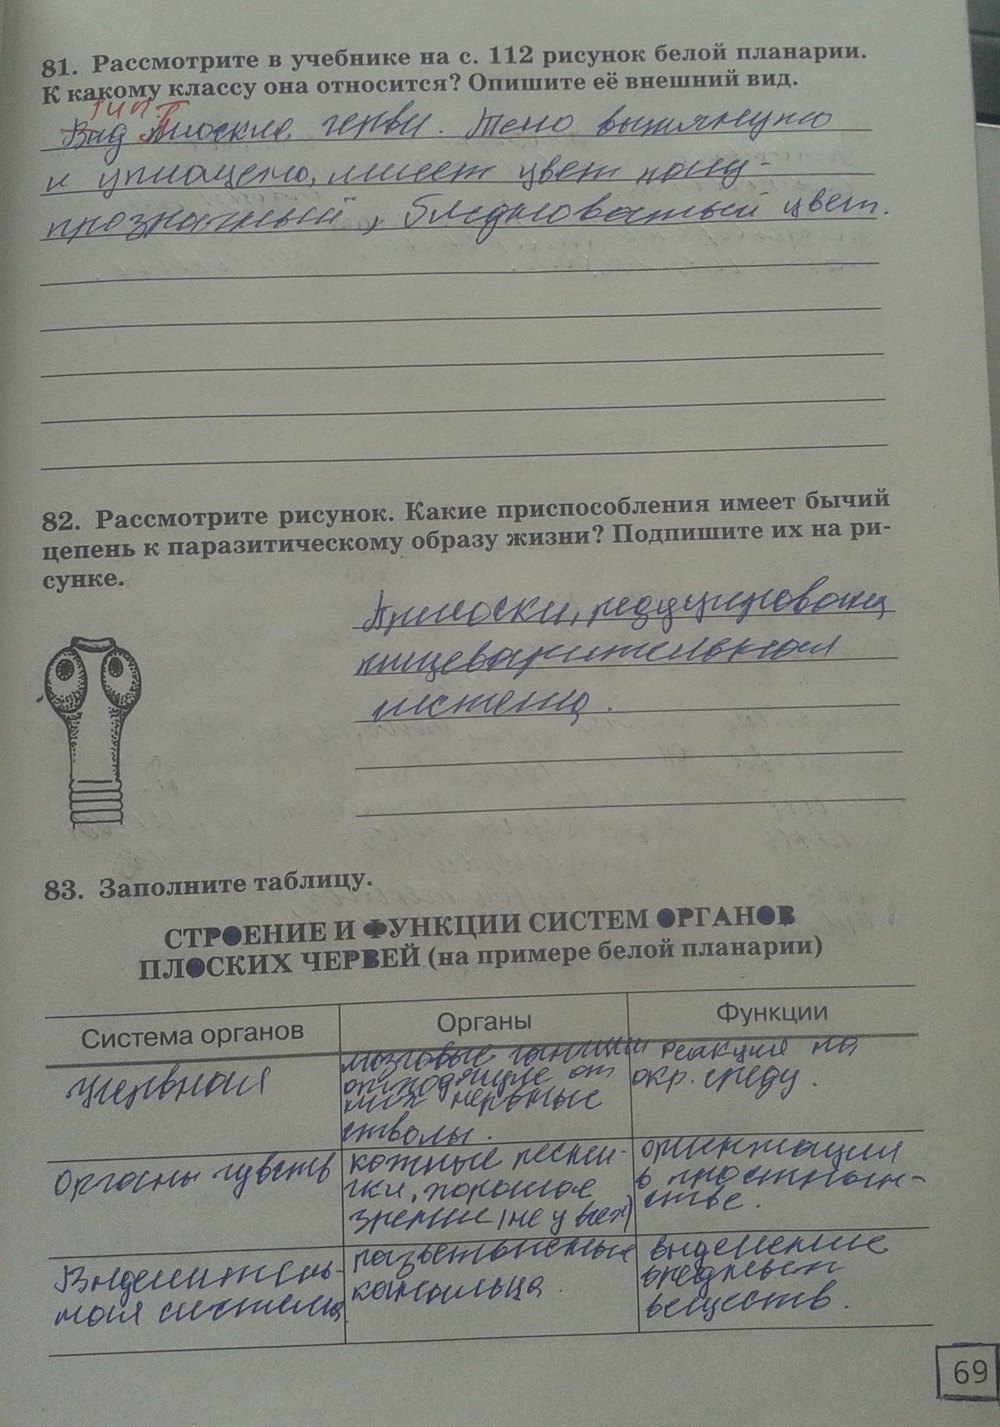 81. Рассмотрите в учебнике на с. 112 рисунок белой планарии.
К какому классу она относится? Опишите её внешний вид.
тип
Вид плоские черви. Тело вытянуто
и уплощено, имеет цвет полу-
прозрачный, бледноватый цвет.
82. Рассмотрите рисунок. Какие приспособления имеет бычий
цепень к паразитическому образу жизни? Подпишите их на ри-
сунке.
Присоски, редуцирована
пищеварительная
система.
83. Заполните таблицу.
СТРОЕНИЕ И ФУНКЦИИ СИСТЕМ ОРГАНОВ
ПЛОСКИХ ЧЕРВЕЙ (на примере белой планарии)
Система органов
Органы
Функции
Нервная
мозговые ганглии
отходящие от
них нервные
стволы.
реакция на
окр. среду.
Органы чувств
кожные реснички
зрение (не у всех)
ориентация
в простран-
стве.
Выделитель-
ная система
разветвленные
канальца.
выделение
вредных
веществ.
69